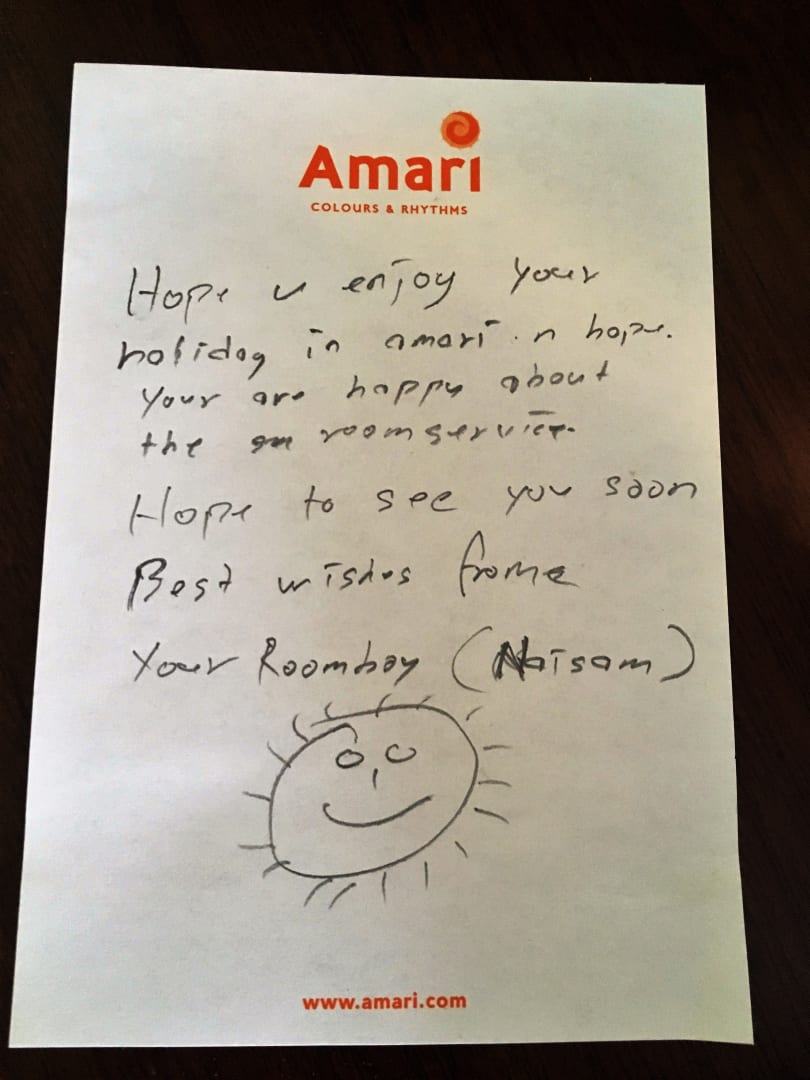 Amari
COLOURS & RHYTHMS
Hope u enjoy your
holiday in amari . n hope.
your are happy about
the room service.
Hope to see you soon
Best wishes frome
Your Roomboy (Naisam)
www.amari.com